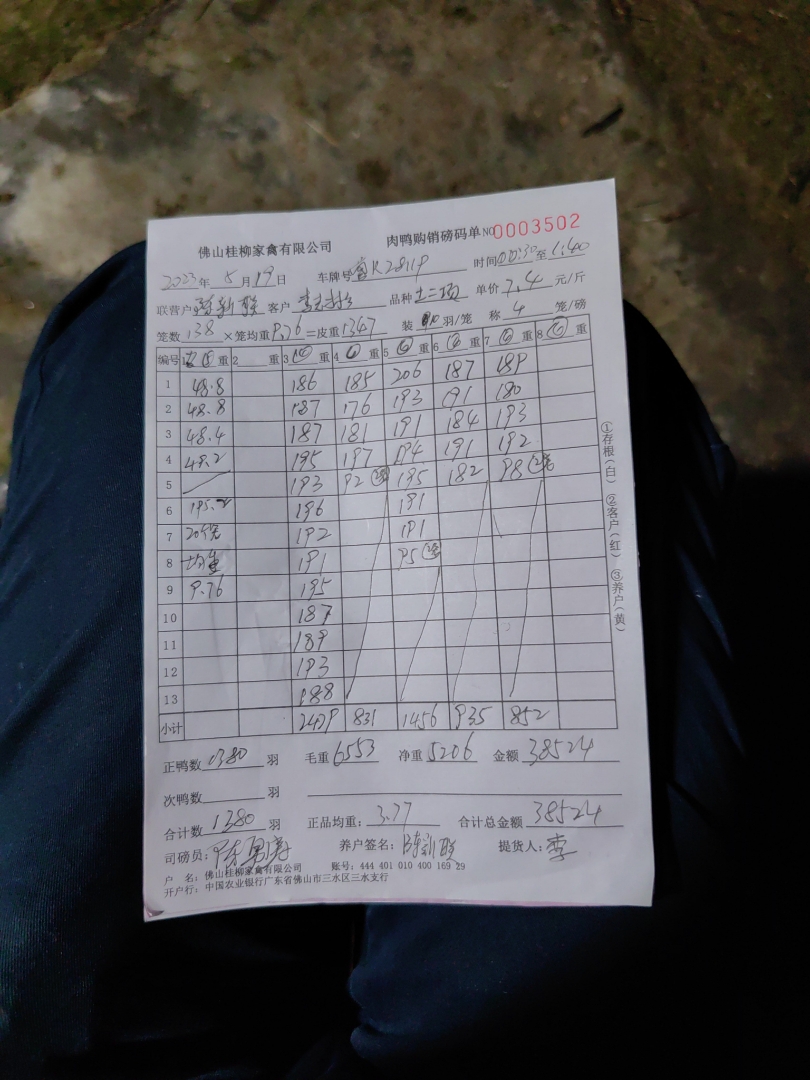 佛山桂柳家禽有限公司 肉鸭购销磅码单 NO 0003502
2023年5月19日 车牌号 K28119 时间 00:30至1:40
联营户 客户 品种 土二项 单价 7.4 元/斤
笼数 138 ×笼均重 9.76 =皮重 1347 装 10 羽/笼 称 4 笼/磅
编号 1 重 2 重 3 重 4 重 5 重 6 重 7 重 8 重
1 48.8 186 185 206 187 189
2 48.8 187 176 193 191 180
3 48.4 187 181 191 184 193
4 49.2 195 197 194 191 192
5 193 92 195 182 98
6 195.2 196 191
7 20笼 192 191
8 均重 191 95
9 9.76 195
10 187
11 189
12 193
13 188
小计 2479 831 1456 935 852
正鸭数 1380 羽 毛重 6553 净重 5206 金额 38524
次鸭数 羽
合计数 1380 羽 正品均重: 3.77 合计总金额 38524
司磅员: 养户签名: 提货人: 李
户 名: 佛山桂柳家禽有限公司 账号: 444 401 010 400 169 29
开户行: 中国农业银行广东省佛山市三水区三水支行
①存根(白) ②客户(红) ③养户(黄)